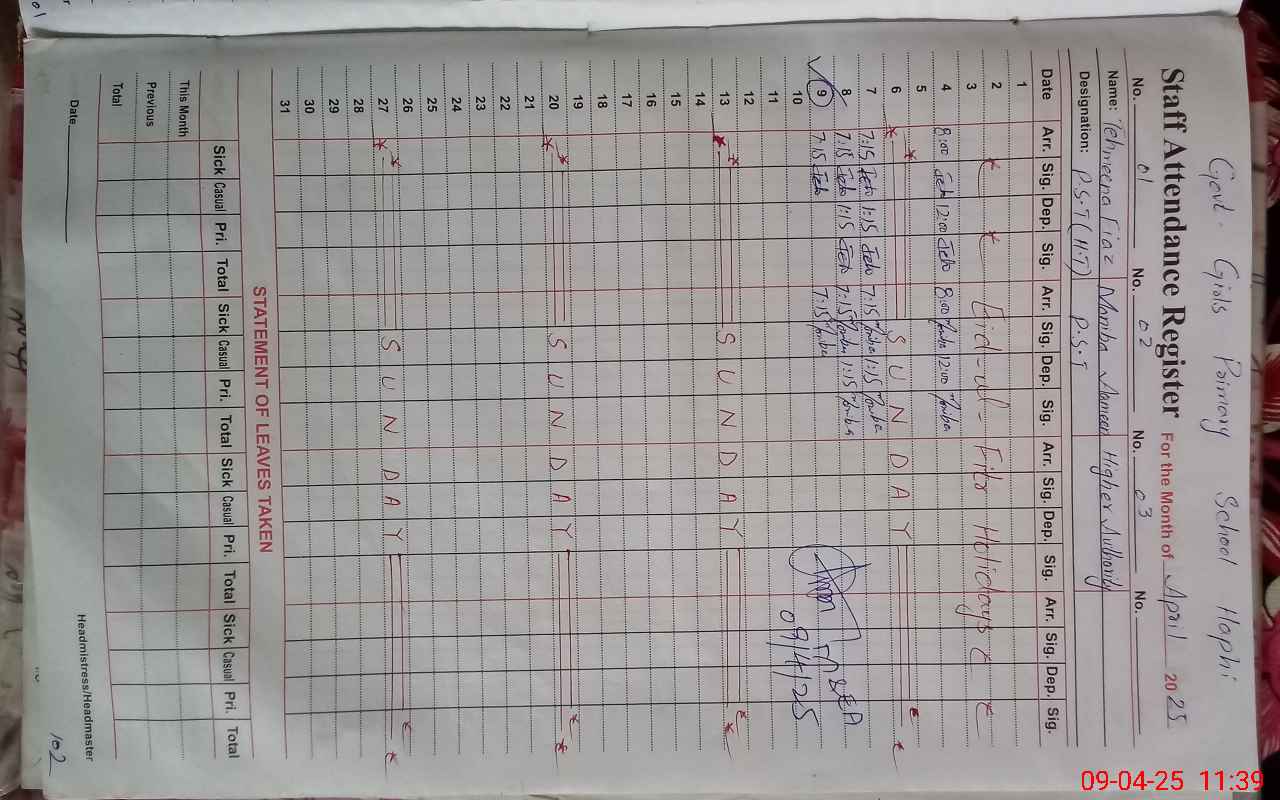 Govt. Girls Primary School Haphi
Staff Attendance Register For the Month of April 2025
No. 01 No. 02 No. 03 No.
Name: Tehmeena Fiaz Maniba Jameen Higher Authority
Designation: P.S.T (H.T) P.S.T
Date Arr. Sig. Dep. Sig. Arr. Sig. Dep. Sig. Arr. Sig. Dep. Sig. Arr. Sig. Dep. Sig.
1
2 Eid-ul-Fitr Holidays
3
4 8:00 12:00 8:00 12:00
5
6 SUNDAY
7 7:15 1:15 7:15 1:15
8 7:15 1:15 7:15 1:15
9 7:15 7:15
10 09/4/25
11
12
13 SUNDAY
14
15
16
17
18
19
20 SUNDAY
21
22
23
24
25
26
27 SUNDAY
28
29
30
31
STATEMENT OF LEAVES TAKEN
Sick Casual Pri. Total Sick Casual Pri. Total Sick Casual Pri. Total Sick Casual Pri. Total
This Month
Previous
Total
Date Headmistress/Headmaster
102
09-04-25 11:39